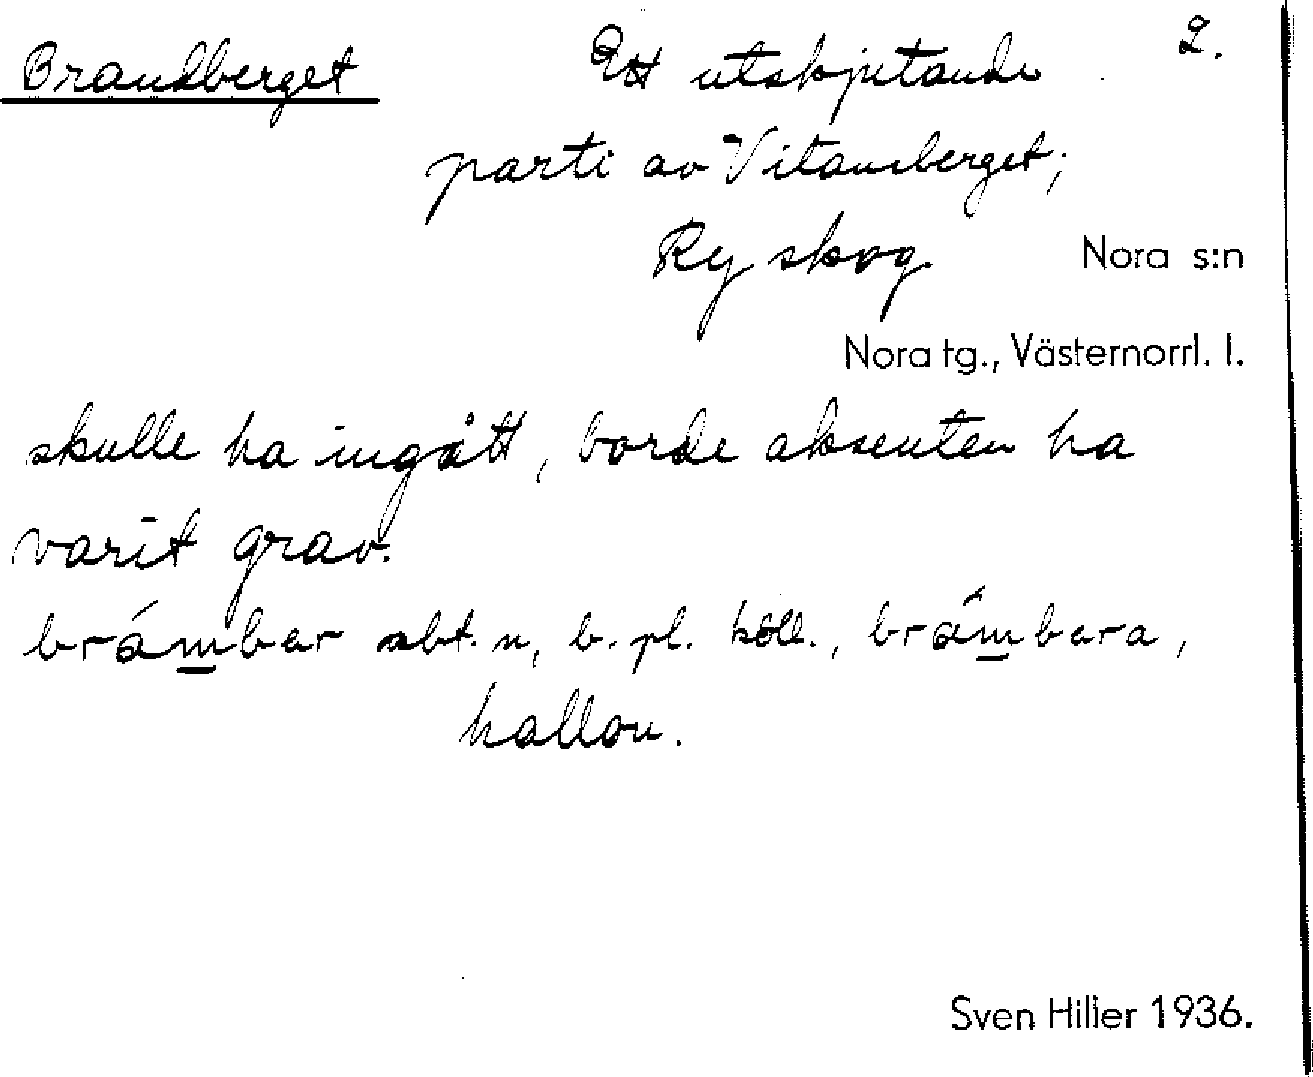 Brandberget Ett utskjutande 2.
parti av Vitansberget;
Ry skog. Nora s:n
Nora tg., Västernorrl. l.
skulle ha ingått, borde aksenten ha
varit grav.
brámbar sbt. n, b. pl. koll., brámbara,
hallon.
Sven Hiller 1936.